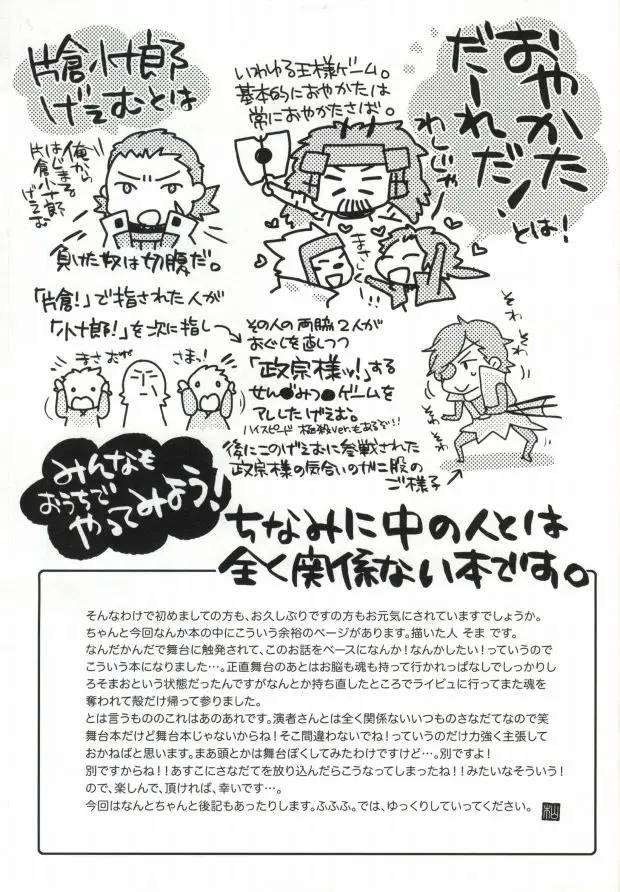 おやかた
だーれだ！
とは！
いわゆる王様ゲーム。
基本的におやかたは
常におやかたさば。
わしじゃ
まさしく!!
片倉小十郎
げえむとは
俺から
はじまる
片倉小十郎
げえむ
負けた奴は切腹だ。
「片倉！」で指された人が
「小十郎！」を次に指し
まさむね
さまっ！
その人の両脇2人が
おぐしを直しつつ
「政宗様ッ！」する
せん●みつ●ゲームを
アレしたげえむ。
ハイスピード 極殺ver.もあるぞ!!
後にこのげえむに参戦された
政宗様の気合いの入った二股の
ご様子
そわ
そわ
そわ
そわ
みんなも
おうちで
やってみよう！
ちなみに中の人とは
全く関係ない本です。
そんなわけで初めましての方も、お久しぶりですの方もお元気にされていますでしょうか。
ちゃんと今回なんか本の中にこういう余裕のページがあります。描いた人 そま です。
なんだかんだで舞台に触発されて、このお話をベースになんか！なんかしたい！っていうので
こういう本になりました…。正直舞台のあとはお脳も魂も持って行かれっぱなしでしっかりし
ろそまおという状態だったんですがなんとか持ち直したところでライビュに行ってまた魂を
奪われて殻だけ帰って参りました。
とは言うもののこれはあのあれです。演者さんとは全く関係ないいつものさなだてなので笑
舞台本だけど舞台本じゃないからね！そこ間違わないでね！っていうのだけ力強く主張して
おかねばと思います。まあ頭とかは舞台ぽくしてみたわけですけど…。別ですよ！
別ですからね！！あすこにさなだてを放り込んだらこうなってしまったね！！みたいなそういう！
ので、楽しんで、頂ければ、幸いです…。
今回はなんとちゃんと後記もあったりします。ふふふ。では、ゆっくりしていってください。